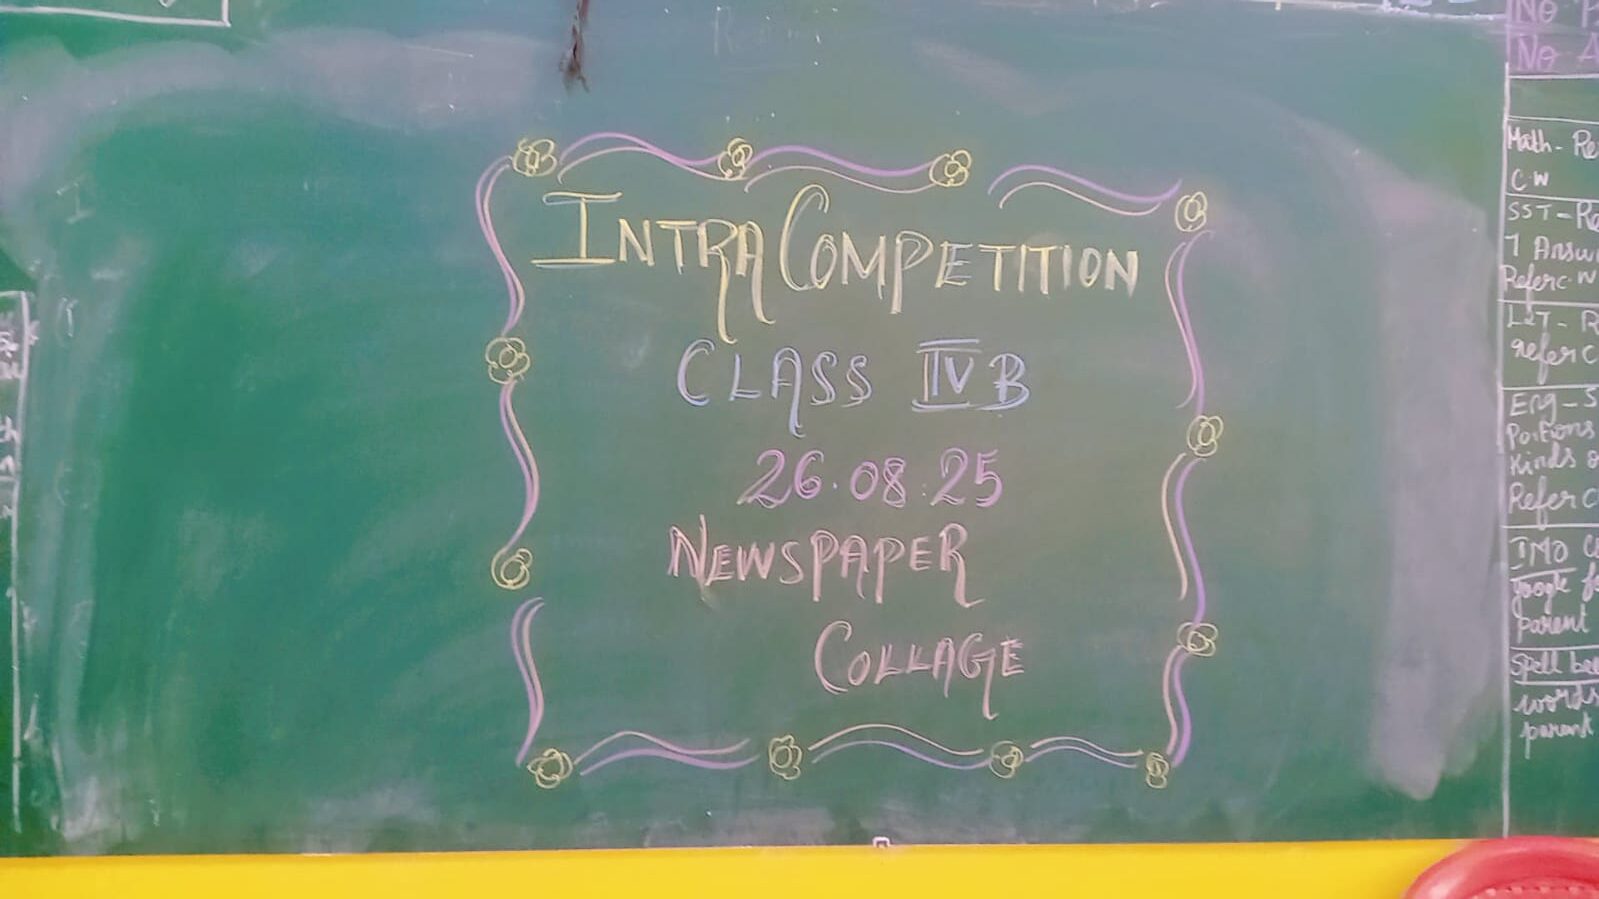 INTRA COMPETITION
CLASS IV B
26.08.25
NEWSPAPER
COLLAGE
No
No
Math- Re
C.W
SST-Re
Refer C.W
refer C
Eng-S
Kinds o
Refer C
IMO
google fo
parent
Spell bee
words
parent